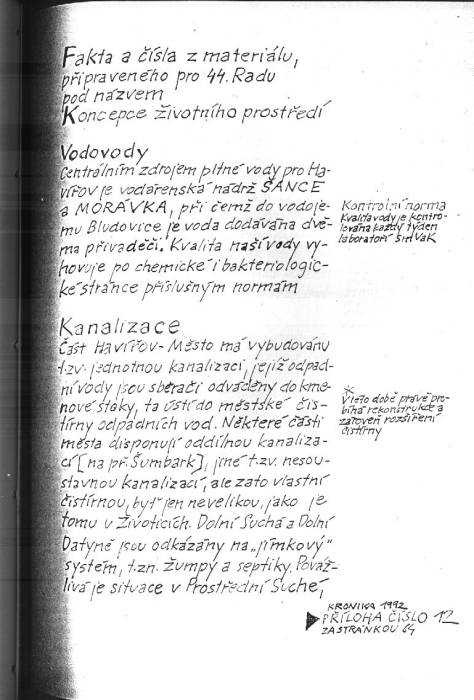 Fakta a čísla z materiálu,
připraveného pro 44. Radu
pod názvem
Koncepce životního prostředí
Vodovody
Centrálním zdrojem pitné vody pro Ha-
vířov je vodárenská nádrž ŠANCE
a MORÁVKA, při čemž do vodoje-
mu Bludovice je voda dodávána dvě-
ma přivaděči. Kvalita naší vody vy-
hovuje po chemické i bakteriologic-
ké stránce příslušným normám
Kontrolní norma
Kvalita vody je kontro-
lována každý týden
laboratoří SmVaK
Kanalizace
Část Havířov - Město má vybudovánu
t.zv. jednotnou kanalizaci, jejíž odpad-
ní vody jsou sběrači odváděny do kme-
nové stoky, ta ústí do městské čis-
tírny odpadních vod. Některé části
města disponují oddílnou kanaliza-
cí [na př. Šumbark], jiné t.zv. nesou-
stavnou kanalizací, ale zato vlastní
čistírnou, byť jen nevelikou, jako je
tomu v Životicích. Dolní Suchá a Dolní
Datyně jsou odkázány na „jímkový"
systém, t.zn. žumpy a septiky. Pováž-
livá je situace v Prostřední Suché,
*
V této době právě pro-
bíhá rekonstrukce a
zároveň rozšíření
čistírny
KRONIKA 1992
PŘÍLOHA ČÍSLO 12
ZA STRÁNKOU 64